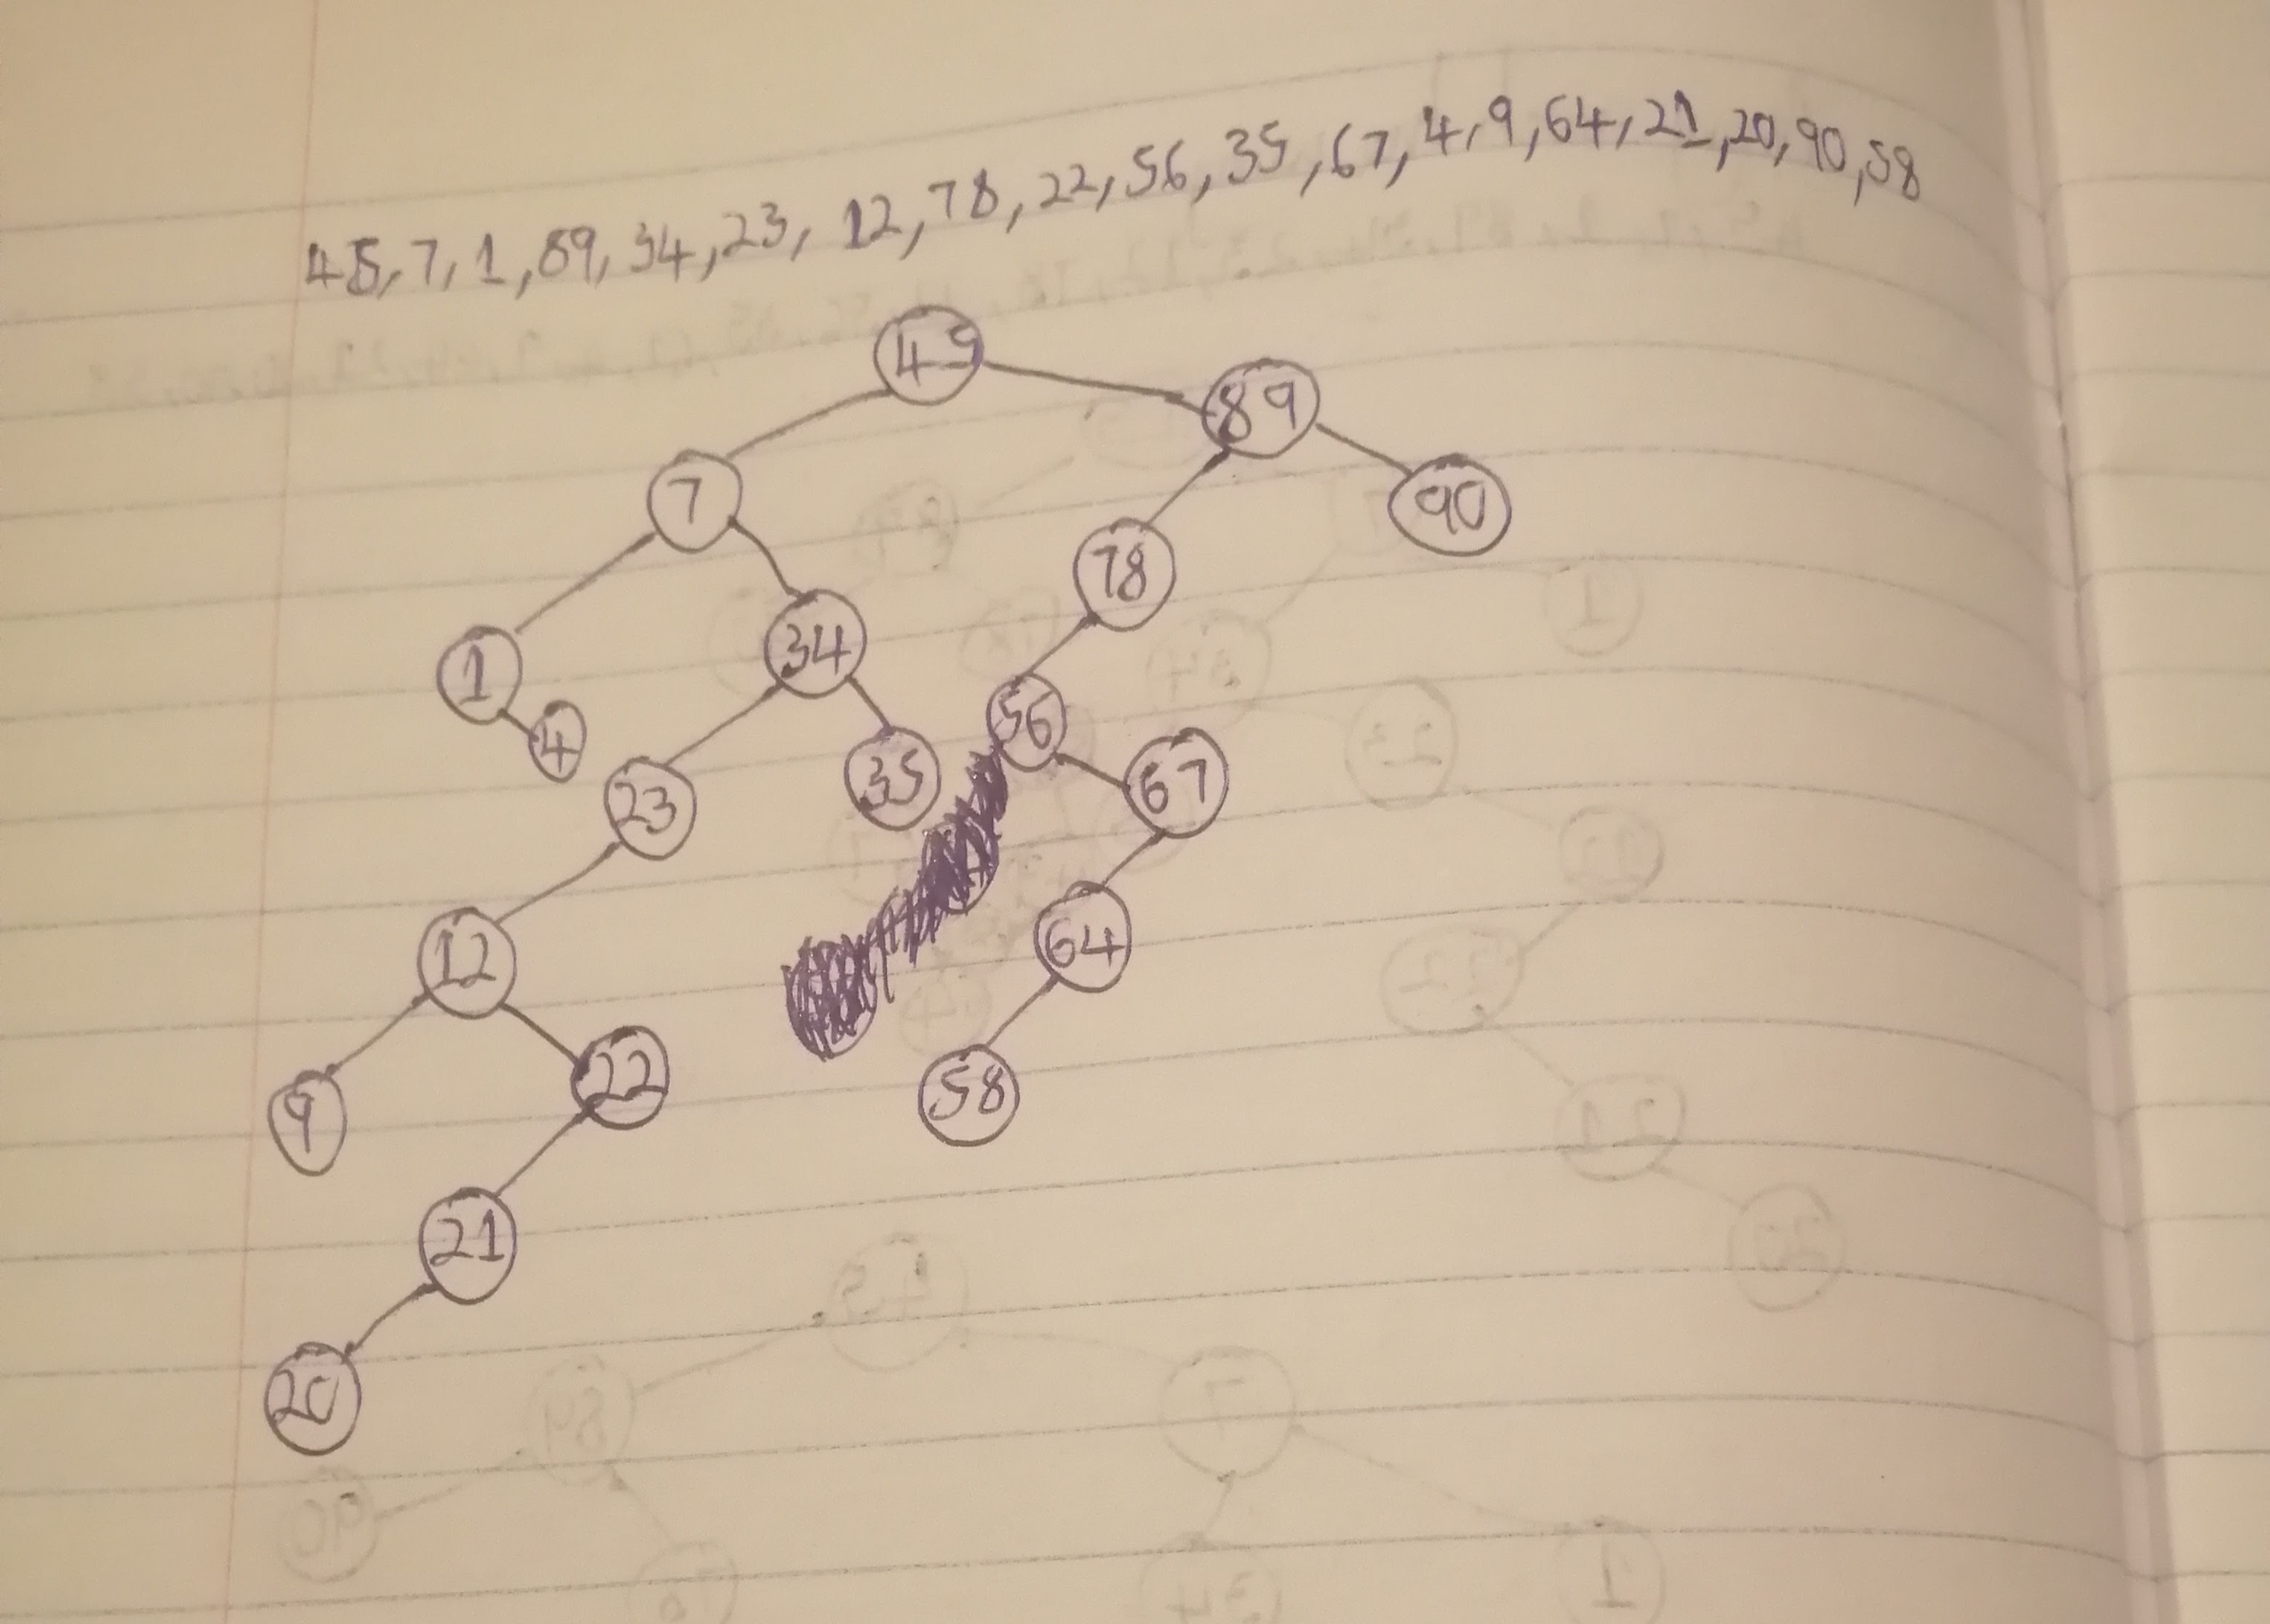 45, 7, 1, 89, 34, 23, 12, 78, 22, 56, 35, 67, 4, 9, 64, 21, 20, 90, 58
45
89
7
90
78
34
1
56
4
35
67
23
64
12
22
58
9
21
20